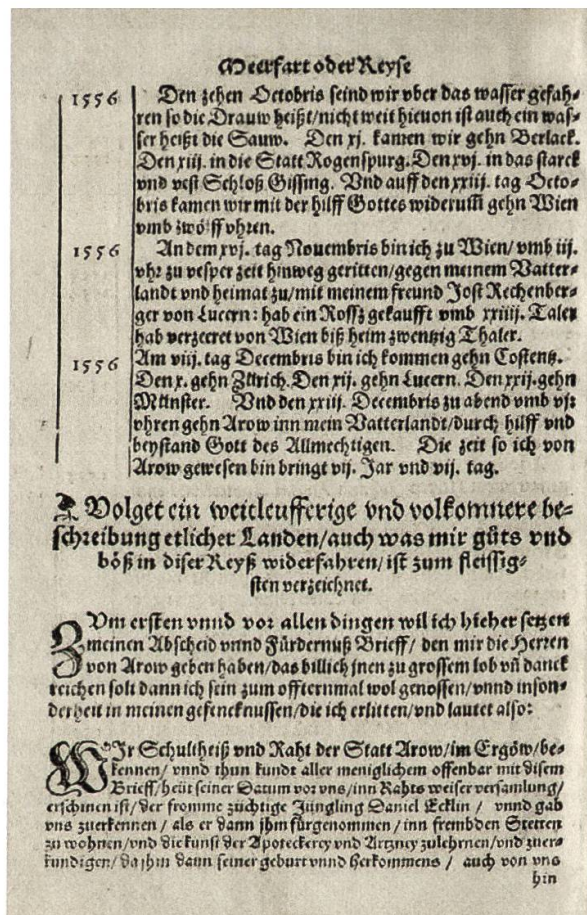 Meerfart oder Reyse
1556 Den zehen Octobris seind wir vber das wasser gefah-
ren so die Drauw heißt/nicht weit hieuon ist auch ein was-
ser heißt die Sauw. Den xj. kamen wir gehn Berlack.
Den xiij. in die Statt Rogenspurg. Den xvj. in das starck
vnd vest Schloß Gissing. Vnd auff den xxiij. tag Octo-
bris kamen wir mit der hilff Gottes widerum gehn Wien
vmb zwölff vhren.
1556 An dem xvj. tag Nouembris bin ich zu Wien/vmb iij.
vhr zu vesper zeit hinweg geritten/gegen meinem Vatter-
landt vnd heimat zu/mit meinem freund Jost Rechenber-
ger von Lucern: hab ein Rossz gekaufft vmb xxiiij. Taler
hab verzeeret von Wien biß heim zwentzig Thaler.
1556 Am viij. tag Decembris bin ich kommen gehn Costentz.
Den x. gehn Zürich. Den xij. gehn Lucern. Den xxij. gehn
Münster. Vnd den xxiij. Decembris zu abend vmb vjj
vhren gehn Arow inn mein Vatterlandt/durch hilff vnd
beystand Gott des Allmechtigen. Die zeit so ich von
Arow gewesen bin bringt vij. Jar vnd vij. tag.
Volget ein weitleufferige vnd volkomnere be-
schreibung etlicher Landen/auch was mir gůts vnd
böß in diser Reyß widerfahren/ist zum fleissig-
sten verzeichnet.
ZUm ersten vnnd vor allen dingen wil ich hieher setzen
meinen Abscheid vnnd Fürdernuß Brieff/den mir die Herren
von Arow geben haben/das billich jnen zu grossem lob vn̄ danck
reichen solt dann ich sein zum offternmal wol genossen/vnnd inson-
derheit in meinen gefencknussen/die ich erlitten/vnd lautet also:
WJr Schultheiß vnd Raht der Statt Arow/im Ergöw/be-
kennen/vnnd thun kundt aller meniglichem offenbar mit disem
Brieff/heüt seiner Datum vor vns/inn Rahts weiser versamlung/
erschinen ist/der fromme züchtige Jüngling Daniel Ecklin/vnnd gab
vns zuerkennen/als er dann jhm fürgenommen/inn frembden Stetten
zu wohnen/vnd die kunst der Apoteckerey vnd Artzney zulehrnen/vnd zuer-
kundigen/da jhm dann seiner geburt vnnd herkommens/auch von vns
hin